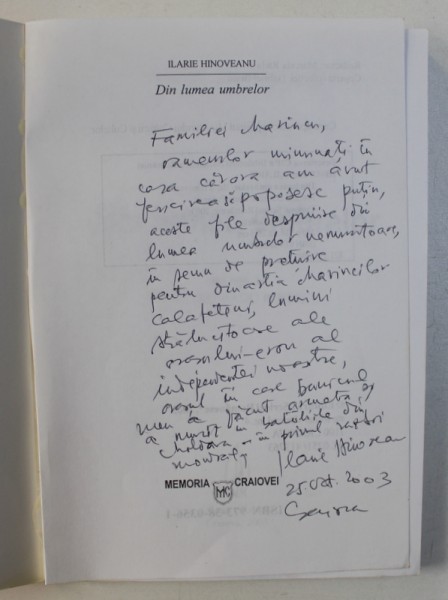 ILARIE HINOVEANU
Din lumea umbrelor
Familiei Marincu,
oamenilor minunați în
casa cărora am avut
fericirea să poposesc puțin,
aceste file desprinse din
lumea umbrelor nemuritoare,
în semn de prețuire
pentru dinastia Marincilor
calafeteni, lumini
strălucitoare ale
orașului-erou al
independenței noastre,
orașul în care bunicul
meu a făcut armata și
a murit în bătăliile din
Moldova - în primul război
mondial,
Ilarie Hinoveanu
25 oct. 2003
Craiova
MEMORIA MC CRAIOVEI